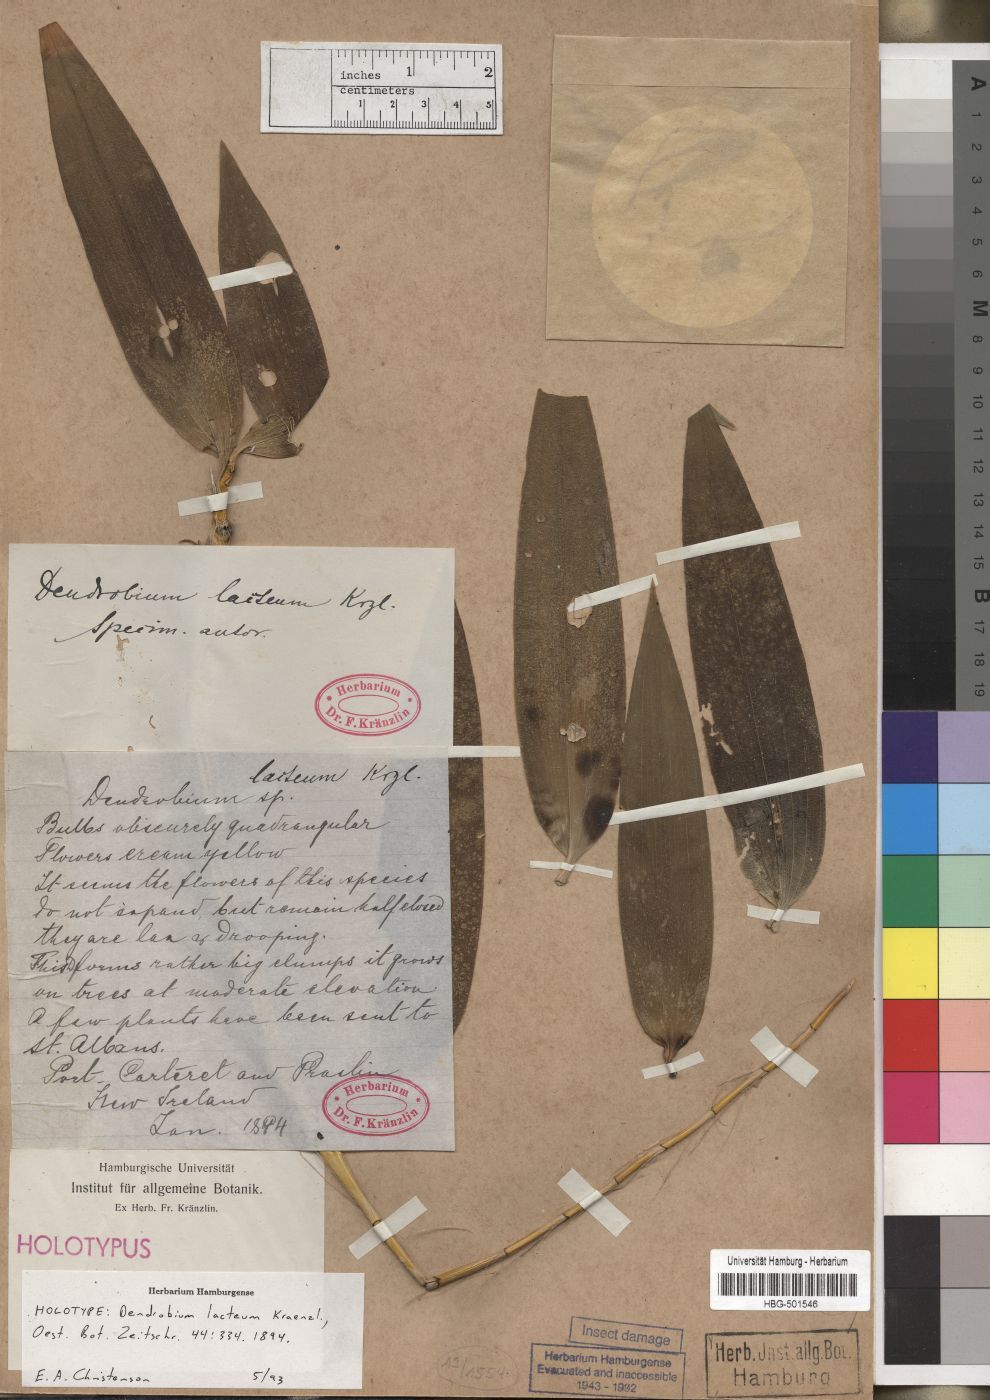 inches 1 2
centimeters
1 2 3 4 5
Dendrobium lacteum Krzl.
Specim. autor.
Herbarium
Dr. F. Kränzlin
lacteum Krzl.
Dendrobium sp.
Bulbs obscurely quadrangular
Flowers cream yellow
It seems the flowers of this species
do not expand, but remain half closed
they are lax & drooping.
This forms rather big clumps it grows
on trees at moderate elevation
A few plants have been sent to
St. Albans.
Port Carteret and Praslin
New Ireland
Jan. 1884
Herbarium
Dr. F. Kränzlin
Hamburgische Universität
Institut für allgemeine Botanik.
Ex Herb. Fr. Kränzlin.
HOLOTYPUS
Herbarium Hamburgense
HOLOTYPE: Dendrobium lacteum Kraenzl.,
Oest. Bot. Zeitschr. 44:334. 1894.
E. A. Christenson 5/93
Universität Hamburg - Herbarium
HBG-501546
Insect damage
Herbarium Hamburgense
Evacuated and inaccessible
1943 - 1992
Herb. Inst. allg. Bot.
Hamburg
A
1
2
3
4
5
6
M
8
9
10
11
12
13
14
15
B
17
18
19